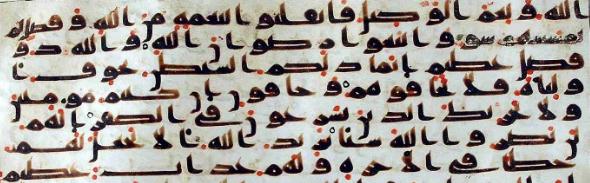 الله و نعم الوكيل فانقلبوا بنعمة من الله و فضل لم
يمسسهم سو و اتبعوا رضون الله و الله ذو
فضل عظيم انما ذلكم الشيطن يخوف ا
ولياه فلا تخافوهم و خافون ان كنتم مومنين
و لا يحزنك الذين يسرعون في الكفر انهم
لن يضروا الله شيا يريد الله الا يجعل لهم
حظا في الاخرة و لهم عذاب عظيم